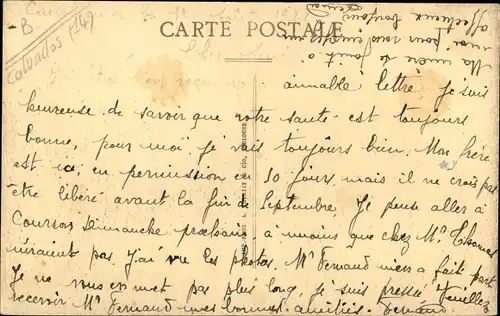 CARTE POSTALE
Calvados (14)
B
aimable lettre je suis
heureuse de savoir que votre santé est toujours
bonne, pour moi je vais toujours bien. Mon frère
est ici en permission en 10 jours mais il ne crois pas
être libéré avant la fin de Septembre. Je pense aller à
Courson Dimanche prochain à moins que chez Mr Thomas
n'iraient pas. J'ai vu les photos. Mr Fernand m'en a fait part
Je ne vous en met pas plus long, je suis pressé Veuillez
recevoir Mr Fernand mes bonnes amitiés. Fernand.
Ma mère se joint à
moi pour vous
affectueux bonjour